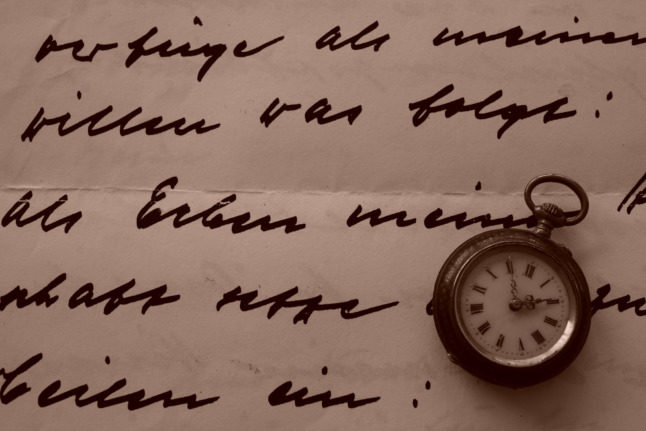 verfüge als meinen
willen was folgt:
als Erben meine
schaft setze zu
Teilen ein: